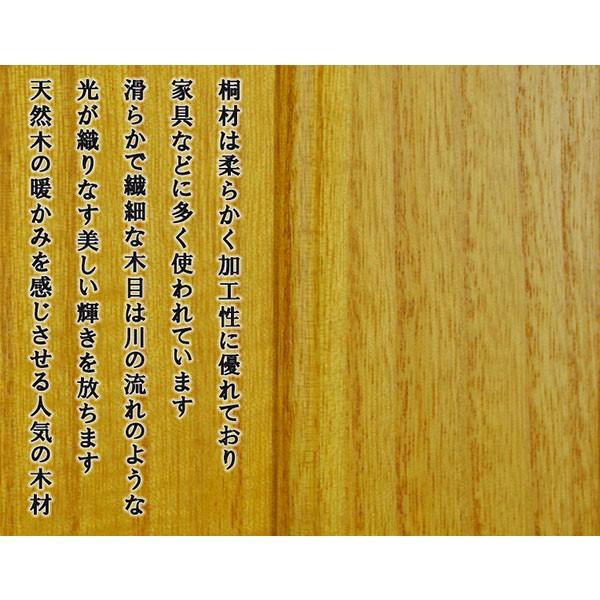 桐材は柔らかく加工性に優れており
家具などに多く使われています
滑らかで繊細な木目は川の流れのような
光が織りなす美しい輝きを放ちます
天然木の暖かみを感じさせる人気の木材